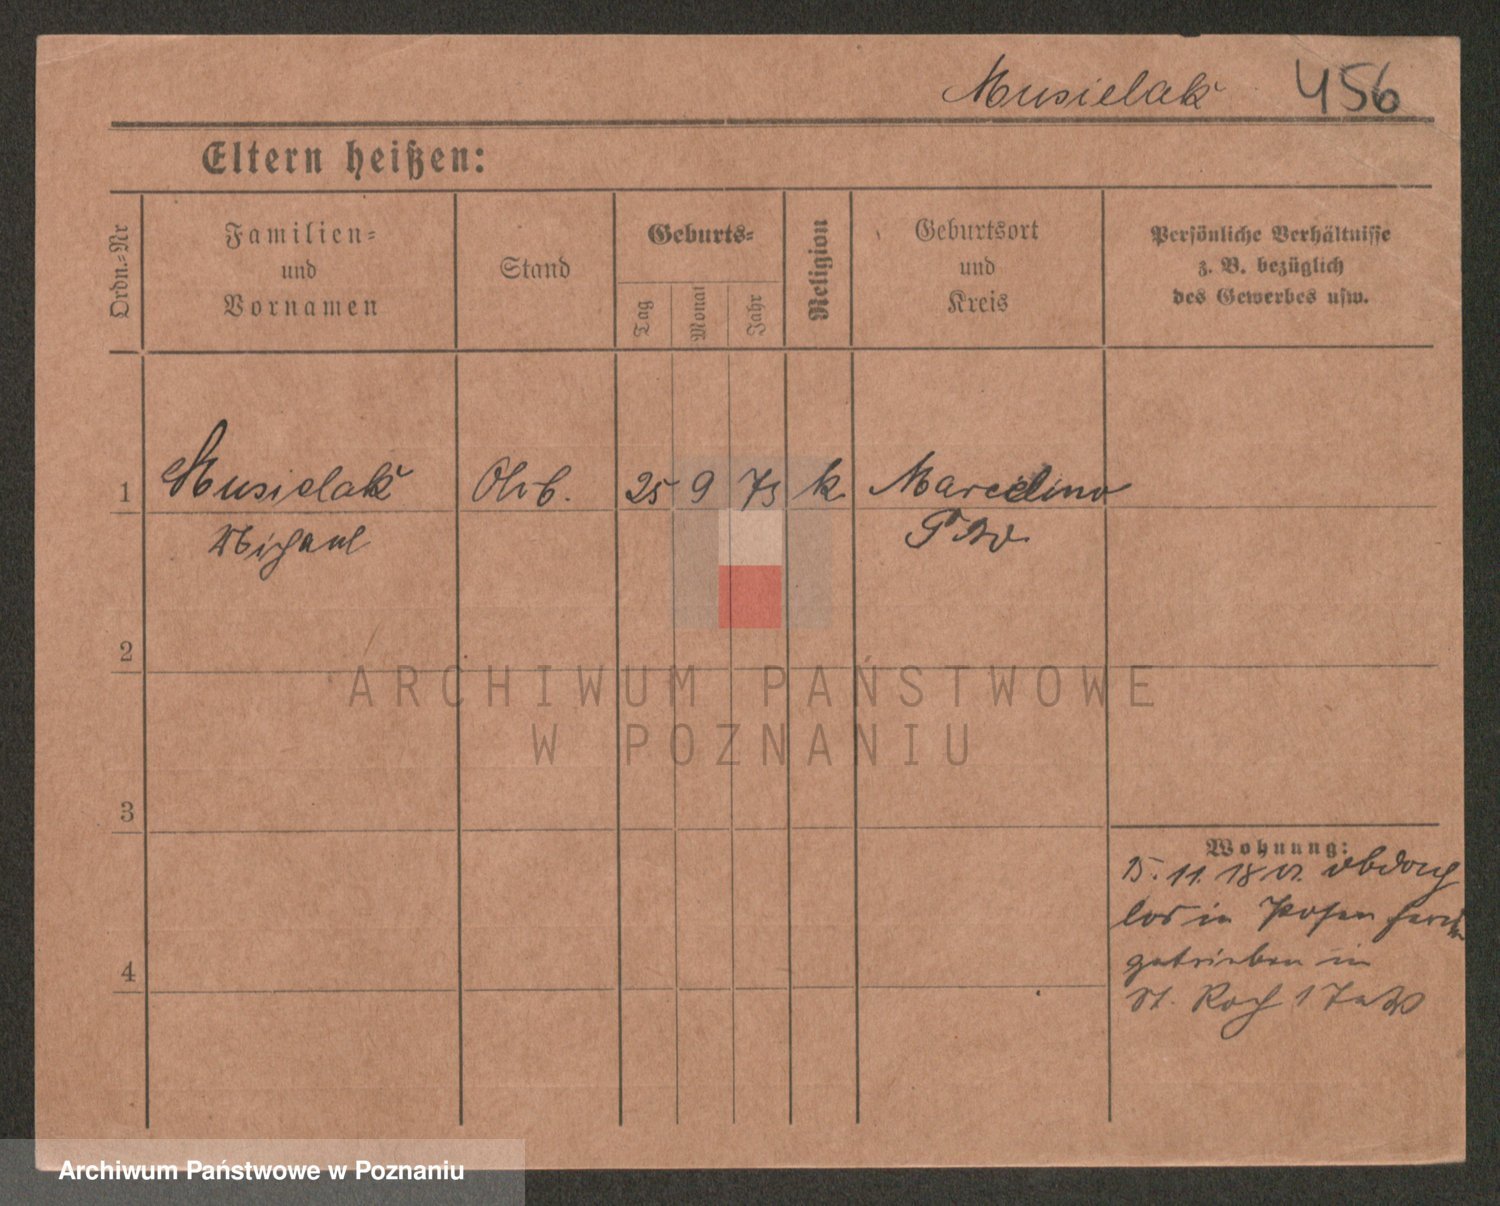 Musielak 456
Eltern heißen:
Ordn.-Nr
Familien-
und
Vornamen
Stand
Geburts-
Tag
Monat
Jahr
Religion
Geburtsort
und
Kreis
Persönliche Verhältnisse
z. B. bezüglich
des Gewerbes usw.
1 Musielak Arb. 25 9 75 k Marcelino
Michael P. W.
2
3
4
Wohnung:
15. 11. 18 obdach
los in Posen
getrieben in
St. Roch 1
ARCHIWUM PAŃSTWOWE
W POZNANIU
Archiwum Państwowe w Poznaniu